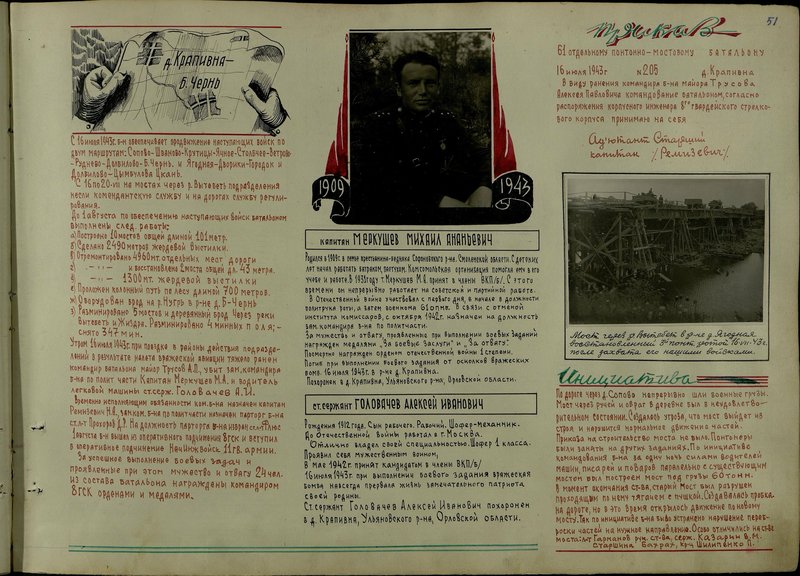 д. Крапивна-
Б. Чернь
С 16 июля 1943г. б-н обеспечивает продвижение наступающих войск по
двум маршрутам: Сопово-Иваново-Крутицы-Ячное-Столбчее-Ветров-
-Руднево-Долбилово-Б.Чернь и Ягодная-Дворики-Городок и
Долбилово-Цымбулова Цкань.
С 16 по 20-VII на мостах через р. Вытебеть подразделения
несли комендантскую службу и на дорогах службу регули-
рования.
До 1 августа по обеспечению наступающих войск батальоном
выполнены след. работы:
а) Построено 10 мостов общей длиной 101 метр.
б) Сделано 2490 метров жердевой выстилки.
в) Отремонтировано 4960 мт. отдельных мест дороги
г) -"- -"- и восстановлено 2 моста общей дл. 43 метра.
д) -"- -"- 1300 мт. жердевой выстилки
е) Проложен колонный путь по лесу длиной 700 метров.
ж) Оборудован брод на р. Нугрь в р-не д. Б-Чернь
з) Разминировано 5 мостов и деревянный брод через реки
Вытебеть и Жиздра. Разминировано 4 минных поля;-
снято 347 мин.
Утром 16 июля 1943г. при поездке в районы действия подразде-
лений в результате налета вражеской авиации тяжело ранен
командир батальона майор Трусов А.П., убит зам. командира
б-на по полит части Капитан Меркушев М.А. и водитель
легковой машины ст. серж. Головачев А.И.
Временно исполняющим обязанности ком. б-на назначен капитан
Ремизевич Н.Я., зам. ком. б-на по полит части назначен парторг б-на
ст. л-т Прохоров Д.? На должность парторга б-на избран
1 августа б-н вышел из оперативного подчинения 8 гск и вступил
в оперативное подчинение Нач. Инж. Войск 11 гв. армии.
За успешное выполнение боевых задач и
проявленные при этом мужество и отвагу 24 чел.
из состава батальона награждены командиром
8 ГСК орденами и медалями.
1909 1943
КАПИТАН МЕРКУШЕВ МИХАИЛ АНАНЬЕВИЧ
Родился в 1909г. в семье крестьянина-бедняка Сафоновского р-на Смоленской области. С детских
лет начал работать батраком, пастухом. Комсомольская организация помогла ему в его
учебе и работе. В 1931 году т. Меркушев М.А. принят в члены ВКП/б/. С этого
времени он непрерывно работает на советской и партийной работе.
В Отечественной войне участвовал с первого дня, в начале в должности
политрука роты, а затем военкома 61 опмб. В связи с отменой
института комиссаров, с октября 1942г. назначен на должность
зам. командира б-на по политчасти.
За мужество и отвагу, проявленные при выполнении боевых заданий
награжден медалями „За боевые заслуги" и „За отвагу".
Посмертно награжден орденом отечественной войны 1 степени.
Погиб при выполнении боевого задания от осколков вражеских
бомб. 16 июля 1943г. в р-не д. Крапивна.
Похоронен в д. Крапивна, Ульяновского р-на, Орловской области.
СТ.СЕРЖАНТ ГОЛОВАЧЕВ АЛЕКСЕЙ ИВАНОВИЧ
Рождения 1912 года. Сын рабочего. Рабочий, Шофер-механик.
До Отечественной войны работал в г. Москва.
Отлично владел своей специальностью. Шофер 1 класса.
Проявил себя мужественным воином,
В мае 1942г. принят кандидатом в члены ВКП/б/
16 июля 1943г. при выполнении боевого задания вражеская
бомба навсегда прервала жизнь замечательного патриота
своей родины.
Ст. сержант Головачев Алексей Иванович похоронен
в д. Крапивна, Ульяновского р-на, Орловской области.
51
Приказ
61 отдельному понтонно-мостовому батальону
16 июля 1943г №205 д. Крапивна
В виду ранения командира б-на майора Трусова
Алексея Павловича командование батальоном, согласно
распоряжения корпусного инженера 8го гвардейского стрелко-
вого корпуса принимаю на себя
Адъютант Старший
капитан /Ремизевич/
Мост через р. Вытебеть в р-не д. Ягодная
восстановленный 3й понт. ротой 16-VII-43г.
после захвата его нашими войсками.
Инициатива
По дороге через д. Сопово непрерывно шли военные грузы.
Мост через ручей и овраг в деревне был в неудовлетво-
рительном состоянии. Создалась угроза, что мост выйдет из
строя и нарушится нормальное движение частей.
Приказа на строительство моста не было. Понтонеры
были заняты на других заданиях. По инициативе
командования б-на за одну ночь силами водителей
машин, писарей и поваров параллельно с существующим
мостом был построен мост под грузы 60 тонн.
В момент окончания ст-ва, старый мост был разрушен
проходящим по нему тягачем с пушкой. Создавалась пробка
на дороге, но в это время открылось движение по новому
мосту. Так по инициативе б-на было устранено нарушение переб-
роски частей на нужное направление. Особо отличились на ст-ве
моста: л-т Гарманов рук. ст-ва, серж. Казарин В.М.
старшина Бахрах, кр-ц Шилипенко П.